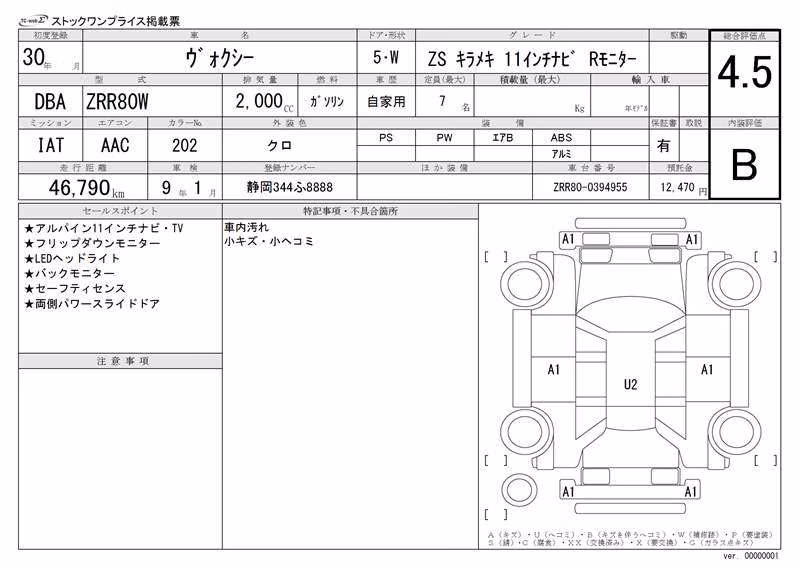 TC-webΣ ストックワンプライス掲載票
初度登録 車名 ドア・形状 グレード 駆動 総合評価点
30年 月 ヴォクシー 5・W ZS キラメキ 11インチナビ Rモニター 4.5
型式 排気量 燃料 車歴 定員(最大) 積載量(最大) 輸入車
DBA ZRR80W 2,000CC ガソリン 自家用 7名 Kg 年モデル
ミッション エアコン カラーNo. 外装色 装備 保証書 取説 内装評価
IAT AAC 202 クロ PS PW エアB ABS 有 B
アルミ
走行距離 車検 登録ナンバー ほか装備 車台番号 預託金
46,790km 9年 1月 静岡344ふ8888 ZRR80-0394955 12,470円
セールスポイント
★アルパイン11インチナビ・TV
★フリップダウンモニター
★LEDヘッドライト
★バックモニター
★セーフティセンス
★両側パワースライドドア
注意事項
特記事項・不具合箇所
車内汚れ
小キズ・小ヘコミ
A1 A1
[ ] [ ]
A1 U2 A1
[ ] [ ]
A1 A1
[ ]
A(キズ)・U(ヘコミ)・B(キズを伴うヘコミ)・W(補修跡)・P(要塗装)
S(錆)・C(腐食)・XX(交換済み)・X(要交換)・G(ガラス点キズ)
ver. 00000001